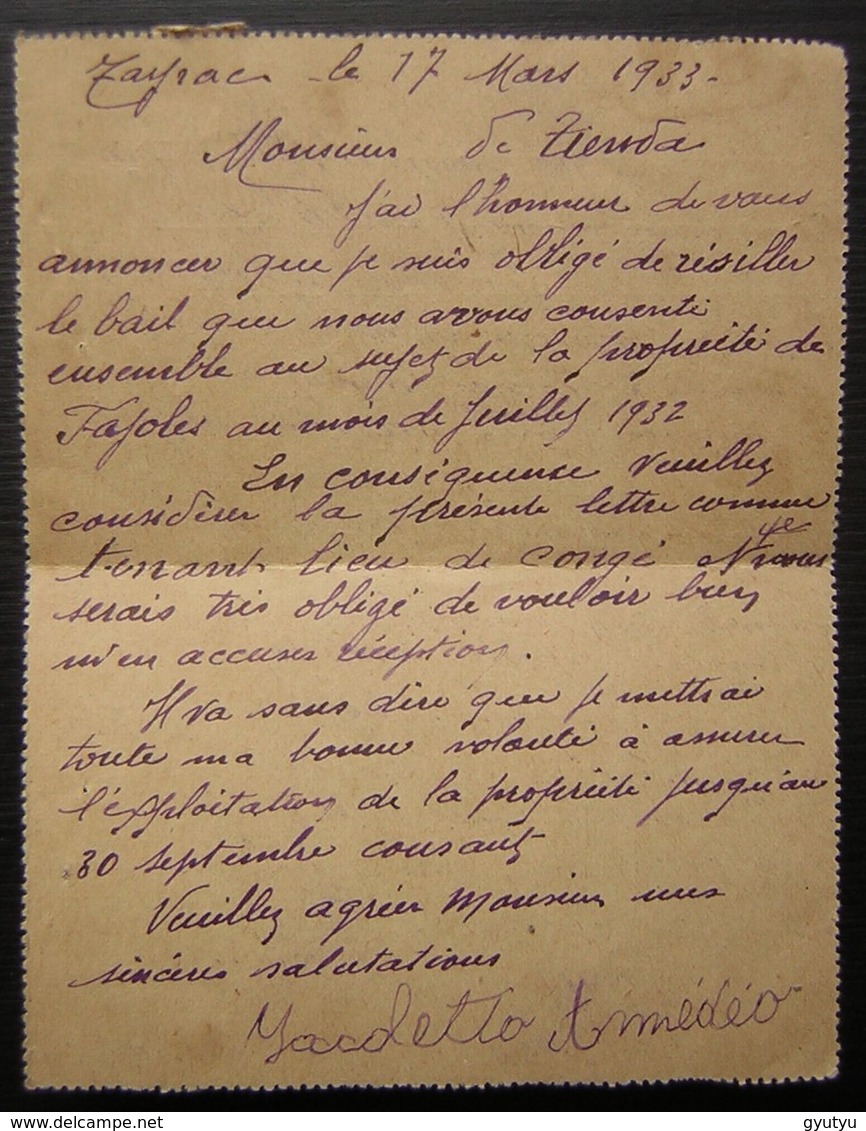 le 17 Mars 1933-
Monsieur de
J'ai l'honneur de vous
annoncer que je suis obligé de résiller
le bail que nous avons consenti
ensemble au sujet de la propriété de
Fajoles au mois de Juillet 1932
En conséquence veuillez
considérer la présente lettre comme
tenant lieu de congé Je vous
serais très obligé de vouloir bien
m'en accuser réception.
Il va sans dire que je mettrai
toute ma bonne volonté à assurer
l'exploitation de la propriété jusqu'au
30 septembre courant
Veuillez agréer Monsieur mes
sincères salutations
Amédéo
gyutyu